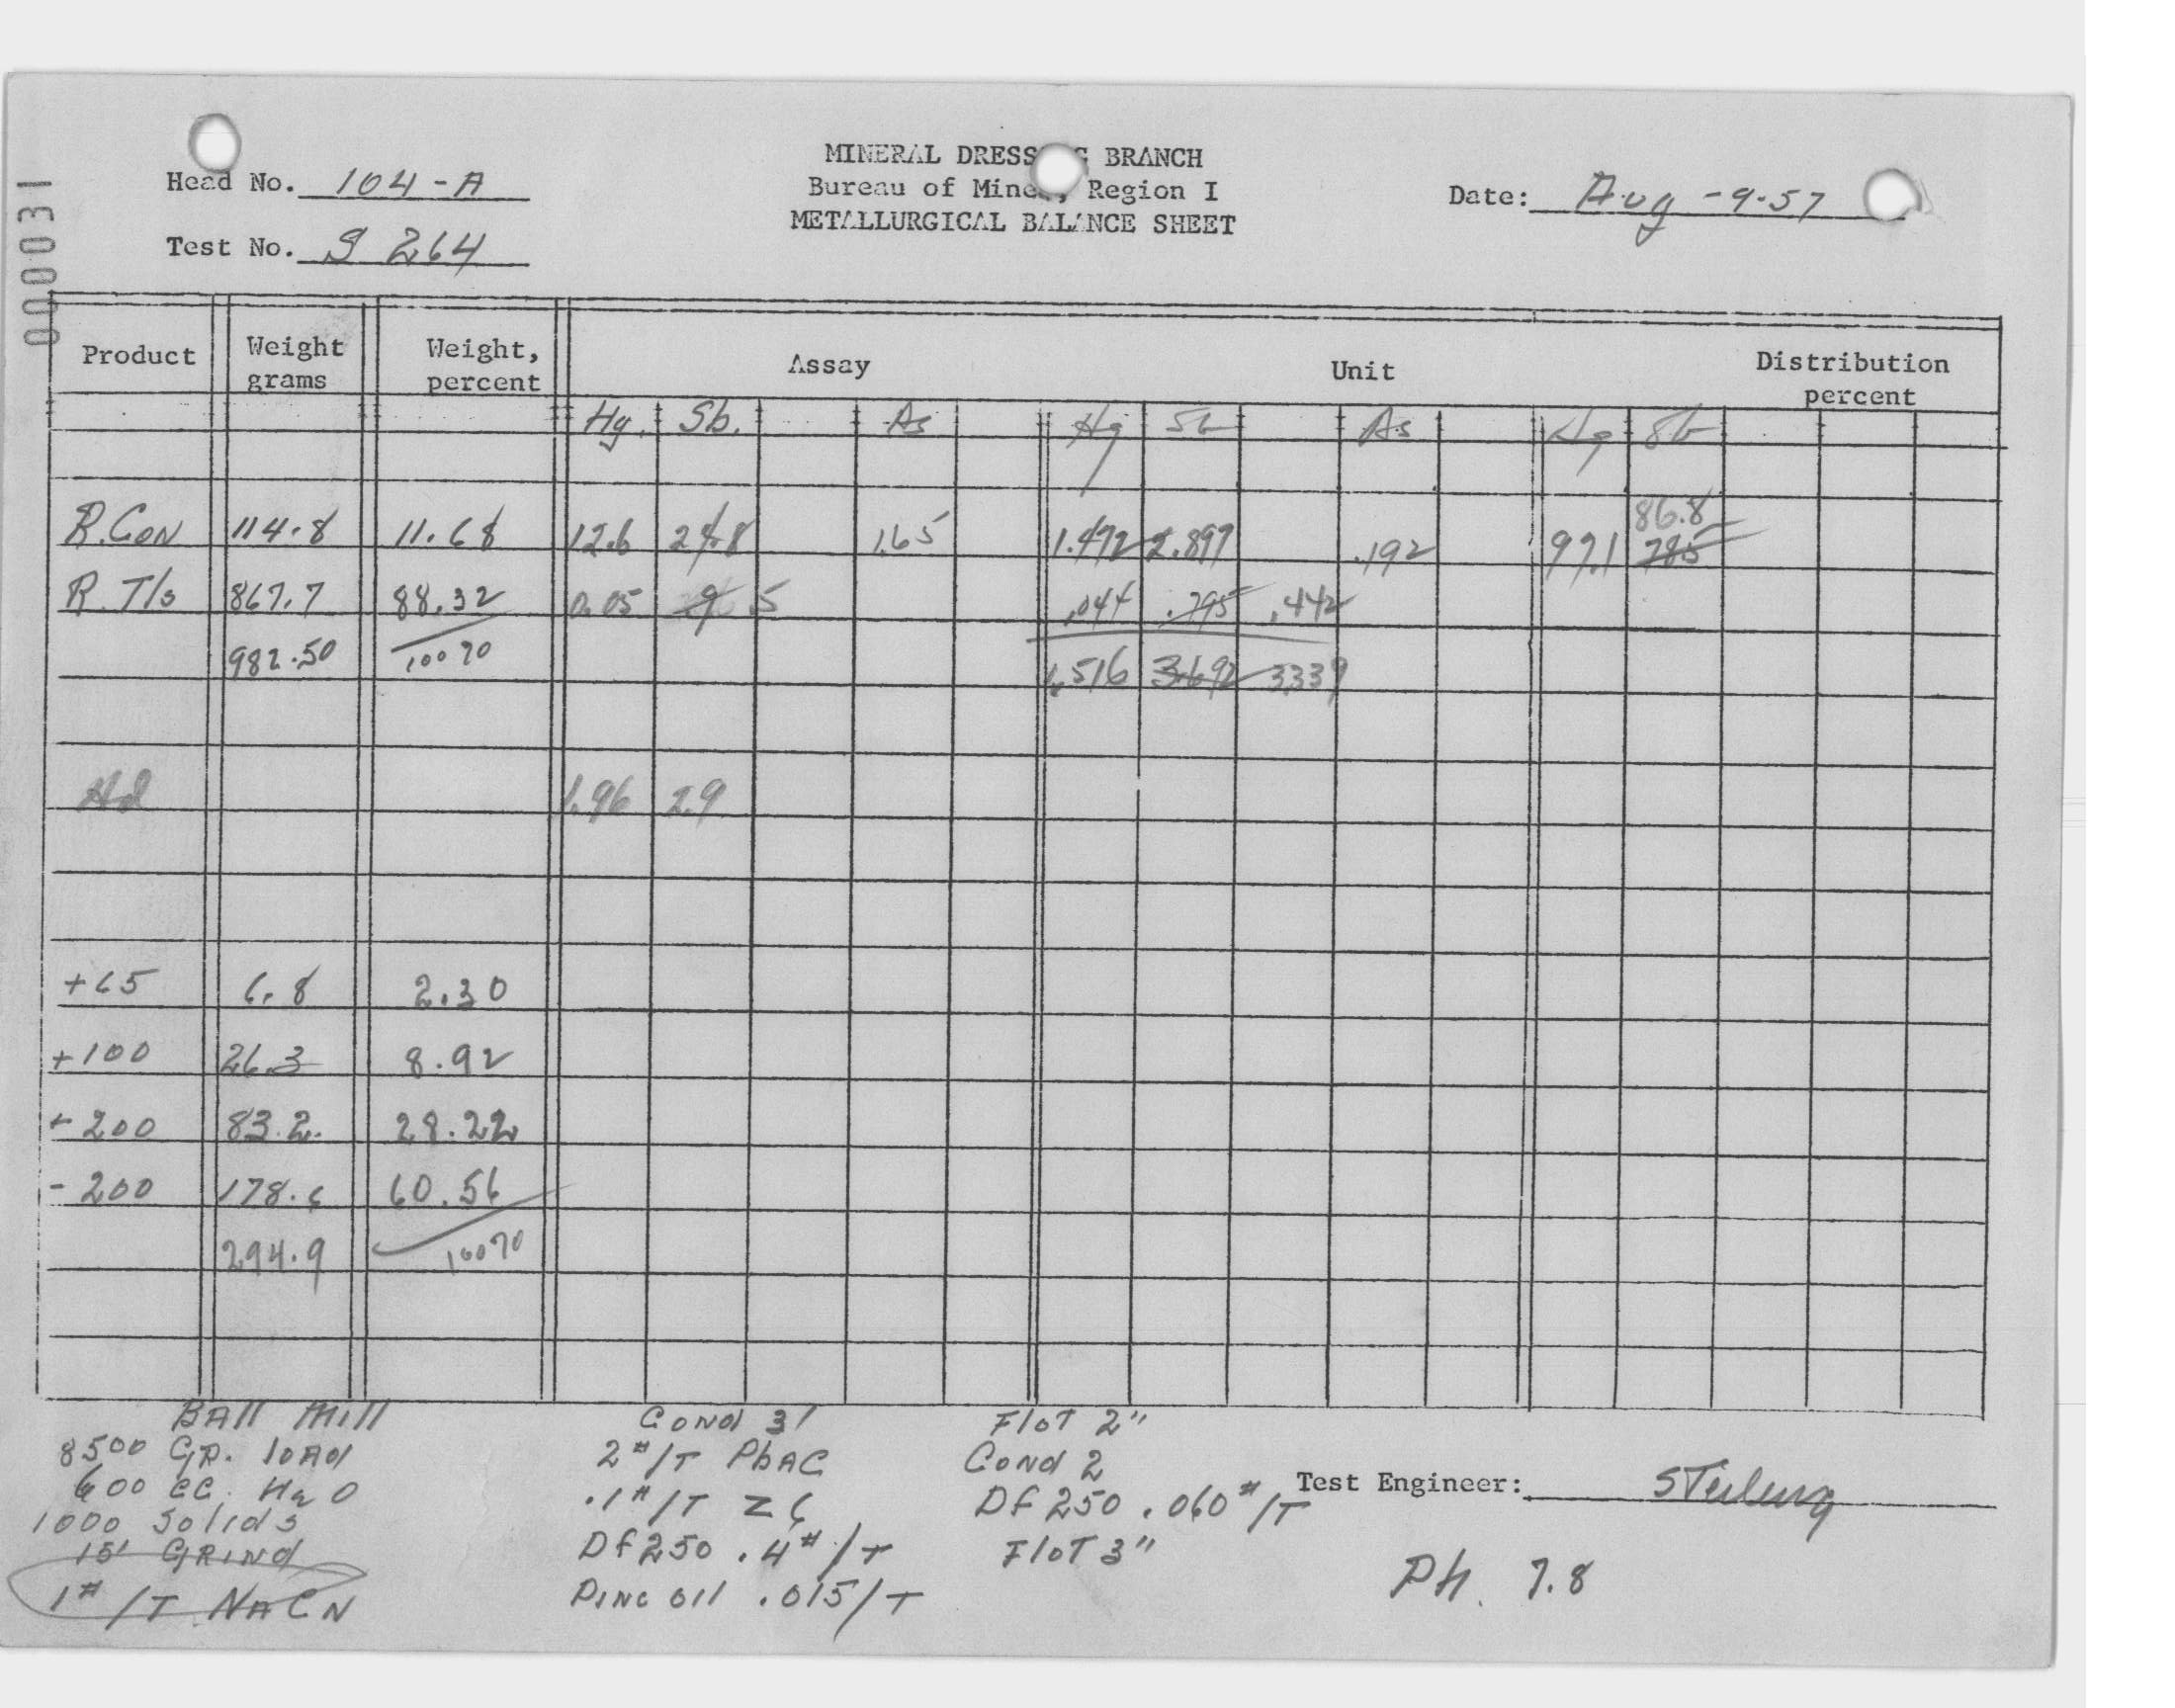 000031
MINERAL DRESS G BRANCH
Head No. 104-A
Bureau of Mine , Region I
Date: Aug -9-57
METALLURGICAL BALANCE SHEET
Test No. S 264
Product Weight grams Weight, percent Assay Unit Distribution percent
Hg. Sb. As Hg Sb As Hg Sb
86.8
R.Con 114.8 11.68 12.6 24.8 1.65 1.472 2.897 .192 97.1 785
R. Tls 867.7 88.32 0.05 .9 .5 .044 .795 .442
982.50 100% 1.516 3.692 3.339
Hd 1.96 2.9
+65 6.8 2.30
+100 26.3 8.92
+200 83.2. 28.22
-200 178.6 60.56
294.9 100%
Ball Mill
8500 GR. load
600 cc. H2O
1000 Solids
15' GRind
1#/T NaCN
Cond 3'
2#/T PbAC
.1#/T Z6
Df250 .4#/T
Pine oil .015/T
Flot 2"
Cond 2
Df 250 .060#/T
Flot 3"
Test Engineer: Sterling
Ph. 7.8